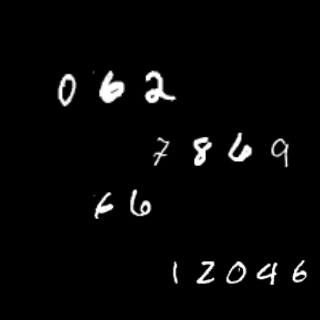 062
7869
66
12046